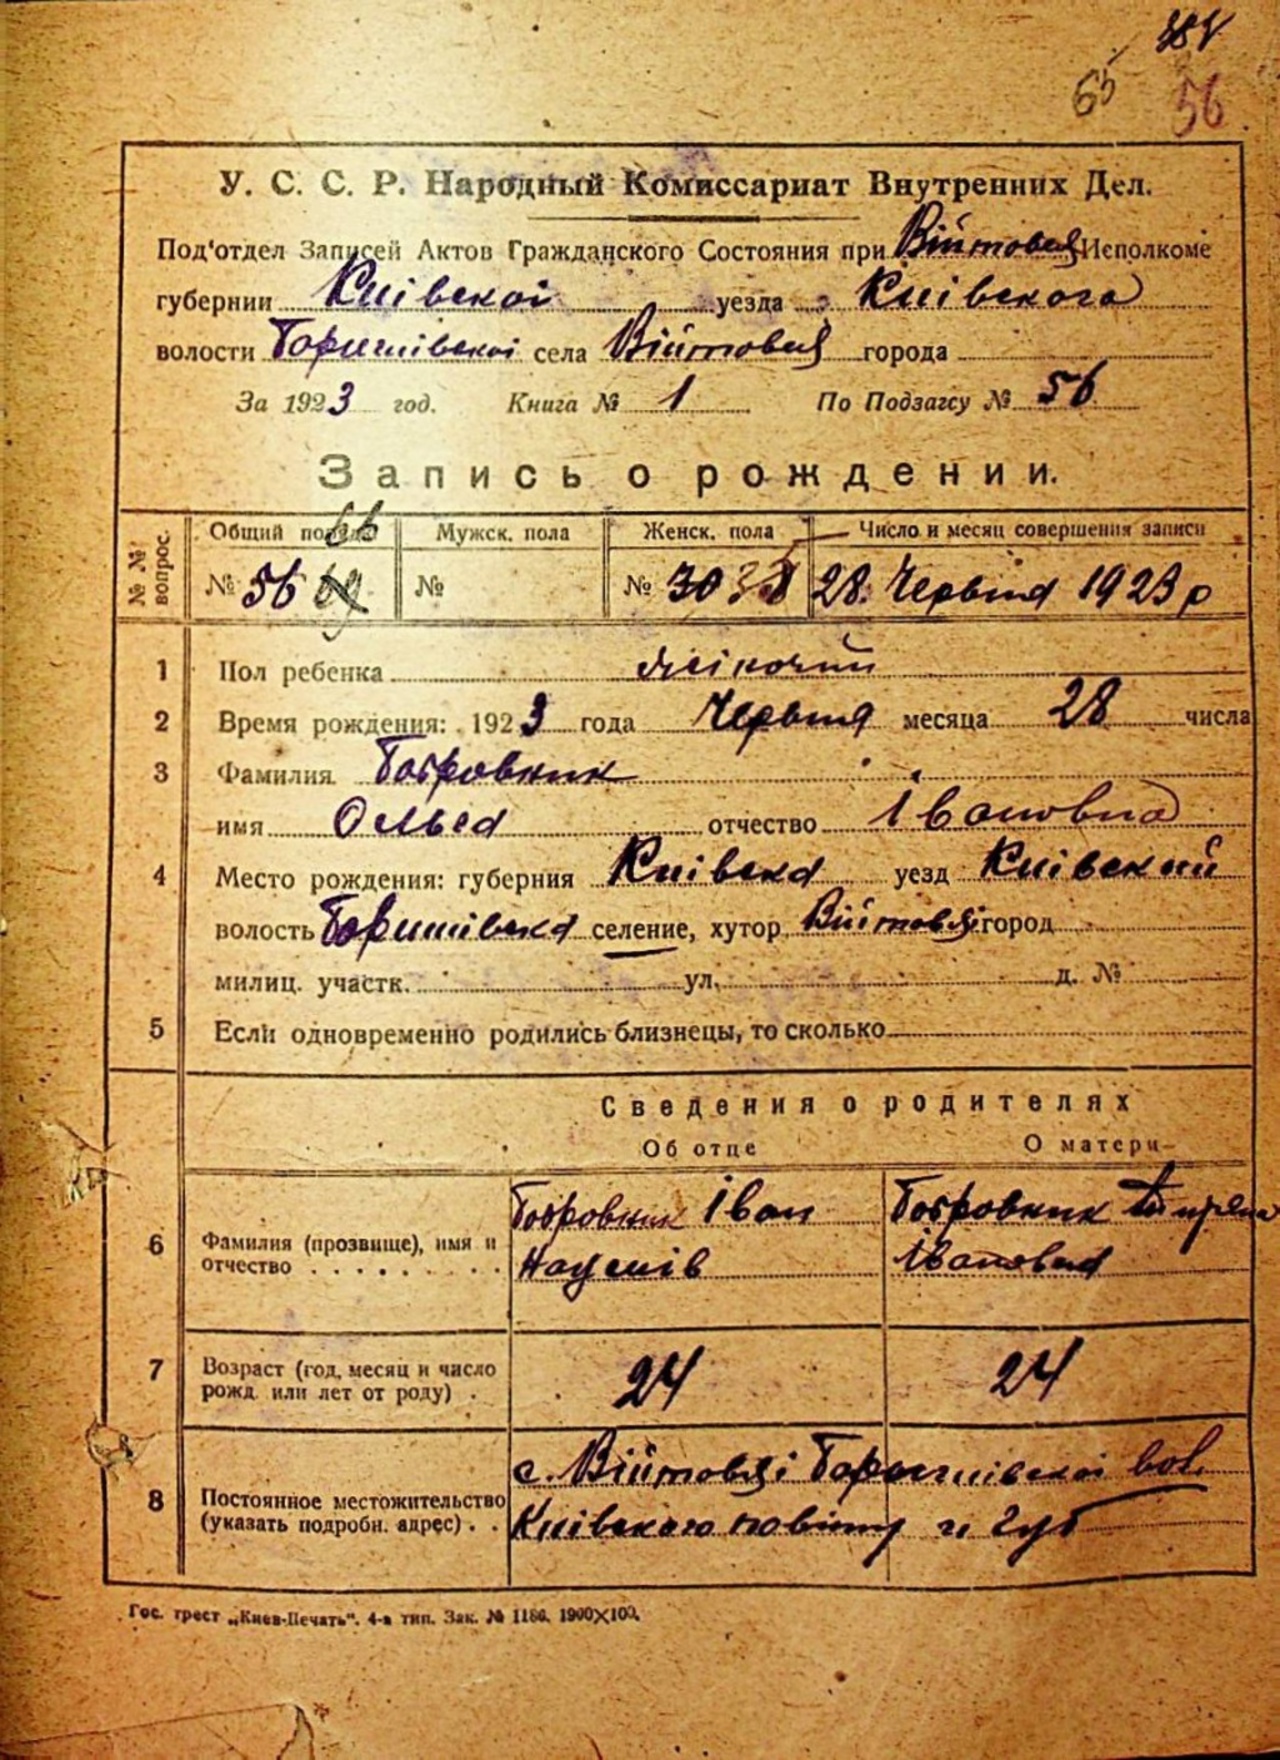 65 56
У. С. С. Р. Народный Комиссариат Внутренних Дел.
Под'отдел Записей Актов Гражданского Состояния при Війтовця Исполкоме
губернии Київскої уезда Київского
волости Баришівскої села Війтовця города
За 1923 год. Книга № 1 По Подзагсу № 56
Запись о рождении.
№ № вопрос. Общий Мужск. пола Женск. пола Число и месяц совершения записи
№ 56 № № 30 28 Червня 1923 р
1 Пол ребенка жіночий
2 Время рождения: 1923 года Червня месяца 28 числа
3 Фамилия Бобровник
имя Ольга отчество Івановна
4 Место рождения: губерния Київска уезд Київский
волость Баришівска селение, хутор Війтовці город
милиц. участк. ул. д. №
5 Если одновременно родились близнецы, то сколько
Сведения о родителях
Об отце О матери
6 Фамилия (прозвище), имя и отчество Бобровник Іван Наумів
Бобровник Івановна
7 Возраст (год, месяц и число рожд. или лет от роду) 24 24
8 Постоянное местожительство (указать подробн. адрес) с. Війтовці Баришівскої вол.
Київского повіту и губ
Гос. трест „Киев-Печать". 4-я тип. Зак. № 1186. 1900×100.